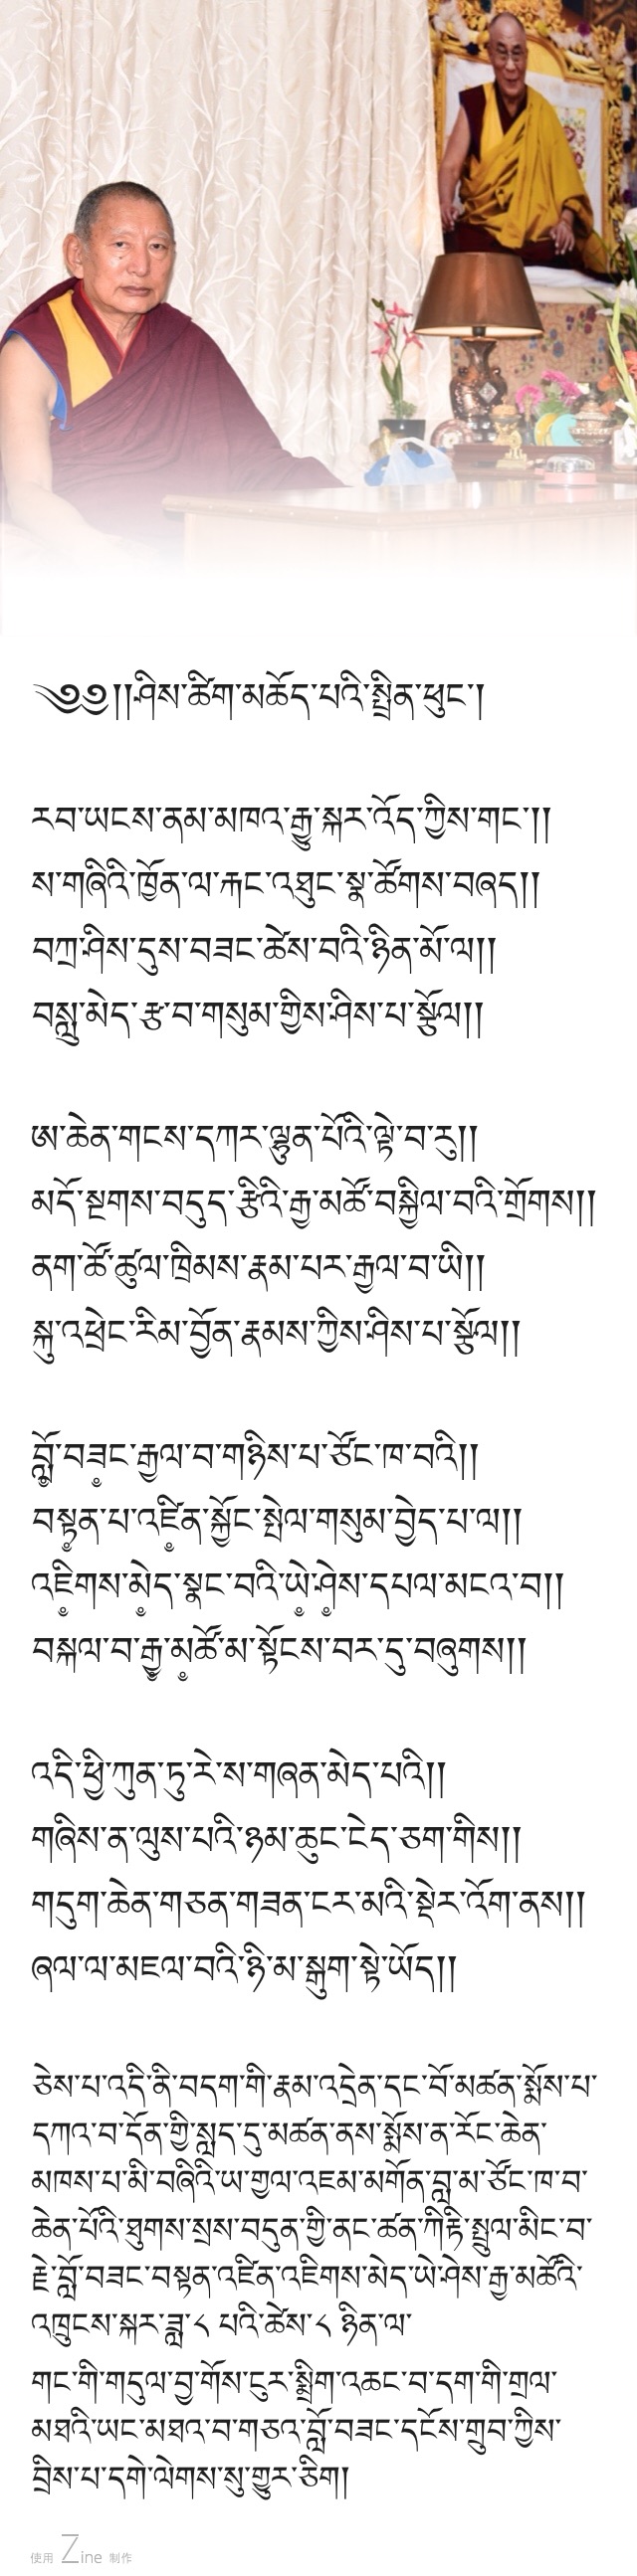 ༄༅།།ཤིས་ཚིག་མཆོད་པའི་སྤྲིན་ཕུང་།
རབ་ཡངས་ནམ་མཁའ་རྒྱུ་སྐར་འོད་ཀྱིས་གང་།།
ས་གཞིའི་ཁྱོན་ལ་རྐང་འཐུང་སྣ་ཚོགས་བཞད།།
བཀྲ་ཤིས་དུས་བཟང་ཚེས་བའི་ཉིན་མོ་ལ།།
བསླུ་མེད་རྩ་བ་གསུམ་གྱིས་ཤིས་པ་སྩོལ།།
ཨ་ཆེན་གངས་དཀར་ལྷུན་པོའི་ལྟེ་བ་རུ།།
མདོ་སྔགས་བདུད་རྩིའི་རྒྱ་མཚོ་བསྐྱིལ་བའི་གྲོགས།།
ནག་ཚོ་ཚུལ་ཁྲིམས་རྣམ་པར་རྒྱལ་བ་ཡི།།
སྐུ་འཕྲེང་རིམ་བྱོན་རྣམས་ཀྱིས་ཤིས་པ་སྩོལ།།
བློ༷་བཟ༷ང་རྒྱལ་བ་གཉིས་པ་ཙོང་ཁ་བའི།།
བསྟ༷ན་པ་འཛི༷ན་སྐྱོང་སྤེལ་གསུམ་བྱེད་པ་ལ།།
འཇི༷གས་མེ༷ད་སྣང་བའི་ཡེ༷་ཤེ༷ས་དཔལ་མངའ་བ།།
བསྐལ་བ་རྒྱ༷་མ༷ཚོ་མ་སྟོངས་བར་དུ་བཞུགས།།
འདི་ཕྱི་ཀུན་ཏུ་རེ་ས་གཞན་མེད་པའི།།
གཞིས་ན་ལུས་པའི་ཉམ་ཆུང་ངེད་ཅག་གིས།།
གདུག་ཆེན་གཅན་གཟན་ངར་མའི་སྡེར་འོག་ནས།།
ཞལ་ལ་མཇལ་བའི་ཉི་མ་སྒུག་སྟེ་ཡོད།།
ཅེས་པ་འདི་ནི་བདག་གི་རྣམ་འདྲེན་དང་བོ་མཚན་སྨོས་པ་
དཀའ་བ་དོན་གྱི་སླད་དུ་མཚན་ནས་སྨོས་ན་རོང་ཆེན་
མཁས་པ་མི་བཞིའི་ཡ་གྱལ་འཇམ་མགོན་བླ་མ་ཙོང་ཁ་བ་
ཆེན་པོའི་ཐུགས་སྲས་བདུན་གྱི་ནང་ཚན་ཀིརྟི་སྤྲུལ་མིང་བ་
རྗེ་བློ་བཟང་བསྟན་འཛིན་འཇིགས་མེད་ཡེ་ཤེས་རྒྱ་མཚོའི་
འཁྲུངས་སྐར་ཟླ་༨ པའི་ཚེས་༨ ཉིན་ལ་
གང་གི་གདུལ་བྱ་གོས་ངུར་སྨྲིག་འཆང་བ་དག་གི་གྲལ་
མཐའི་ཡང་མཐའ་བ་གཅའ་བློ་བཟང་དངོས་གྲུབ་ཀྱིས་
བྲིས་པ་དགེ་ལེགས་སུ་གྱུར་ཅིག།
使用 Zine 制作